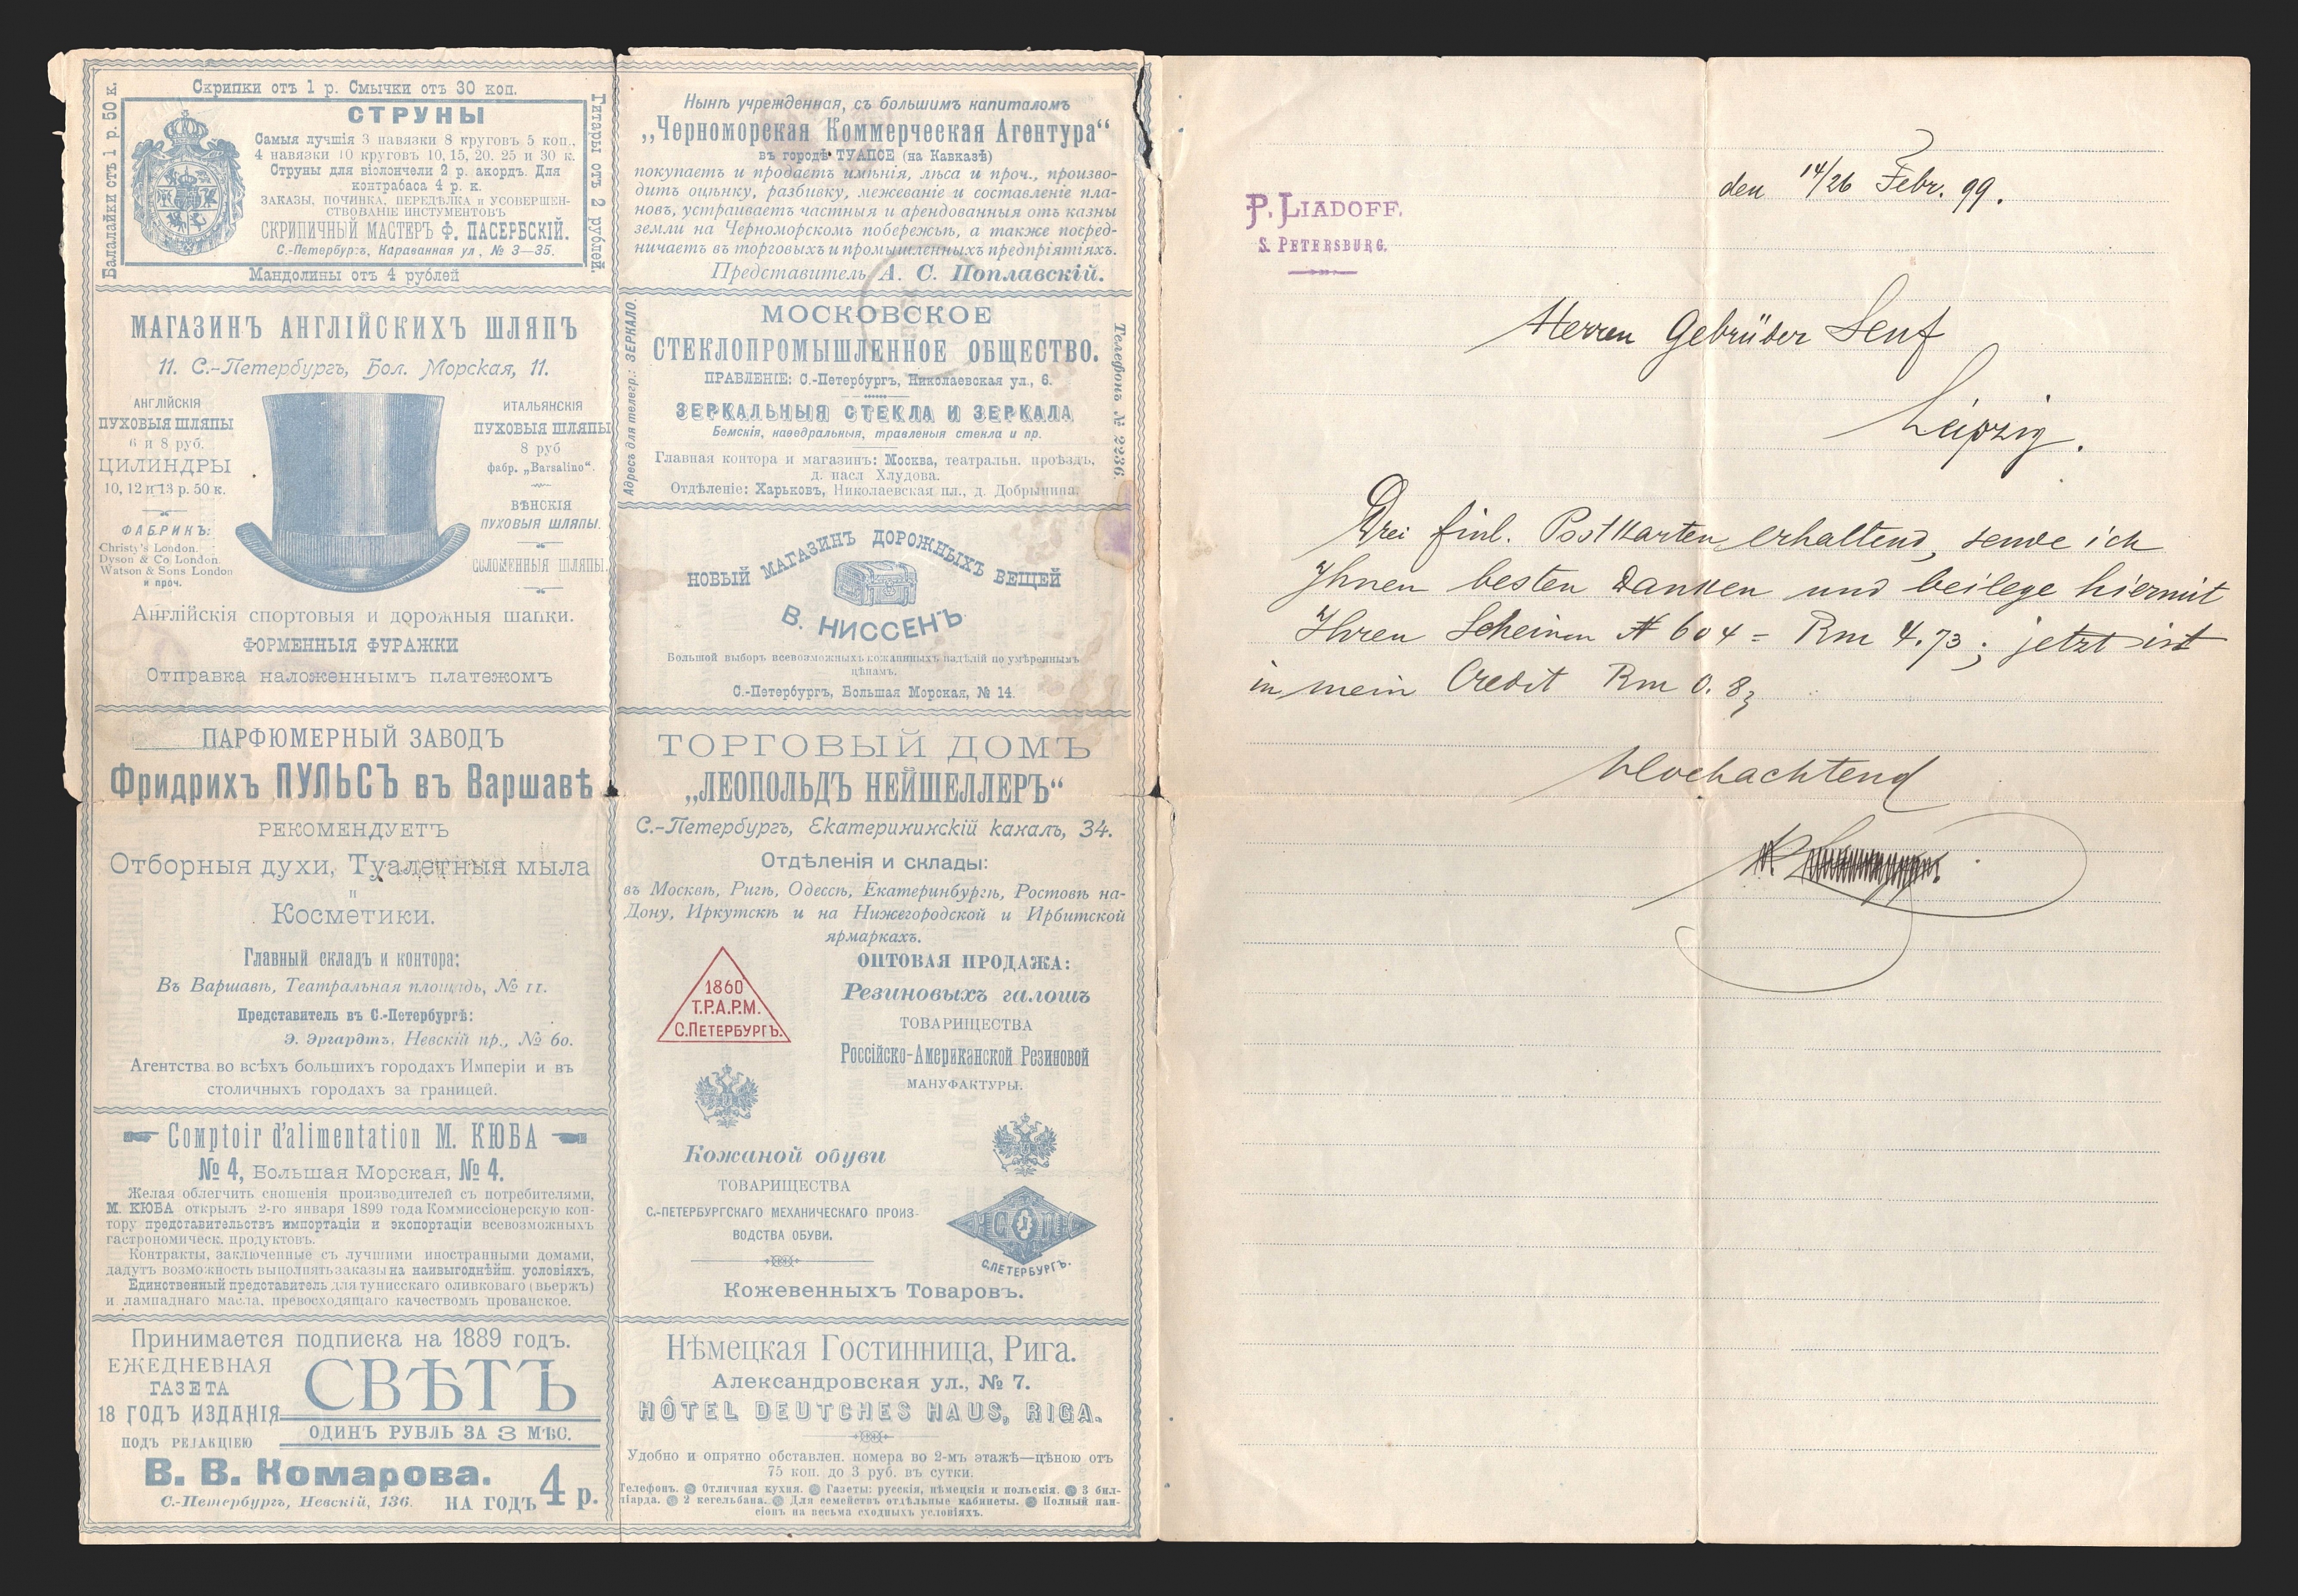 Скрипки отъ 1 р. Смычки отъ 30 коп.
Балалайки отъ 1 р. 50 к.
Гитары отъ 2 рублей.
СТРУНЫ
Самыя лучшія 3 навязки 8 круговъ 5 коп.,
4 навязки 10 круговъ 10, 15, 20, 25 и 30 к.
Струны для віолончели 2 р. акордъ. Для
контрабаса 4 р. к.
ЗАКАЗЫ, ПОЧИНКА, ПЕРЕДѢЛКА и УСОВЕРШЕН-
СТВОВАНІЕ ИНСТУМЕНТОВЪ
СКРИПИЧНЫЙ МАСТЕРЪ Ф. ПАСЕРБСКІЙ.
С.-Петербургъ, Караванная ул., № 3—35.
Мандолины отъ 4 рублей
МАГАЗИНЪ АНГЛІЙСКИХЪ ШЛЯПЪ
11. С.-Петербургъ, Бол. Морская, 11.
АНГЛІЙСКІЯ
ПУХОВЫЯ ШЛЯПЫ
6 и 8 руб.
ЦИЛИНДРЫ
10, 12 и 13 р. 50 к.
ФАБРИКЪ:
Christy's London.
Dyson & Co London.
Watson & Sons London
и проч.
ИТАЛЬЯНСКІЯ
ПУХОВЫЯ ШЛЯПЫ
8 руб
фабр. „Barsalino“.
ВѢНСКІЯ
ПУХОВЫЯ ШЛЯПЫ.
СОЛОМЕННЫЯ ШЛЯПЫ.
Англійскія спортовыя и дорожныя шапки.
ФОРМЕННЫЯ ФУРАЖКИ
Отправка наложеннымъ платежомъ
ПАРФЮМЕРНЫЙ ЗАВОДЪ
Фридрихъ ПУЛЬСЪ въ Варшавѣ
РЕКОМЕНДУЕТЪ
Отборныя духи, Туалетныя мыла
и
Косметики.
Главный складъ и контора:
Въ Варшавѣ, Театральная площадь, № 11.
Представитель въ С.-Петербургѣ:
Э. Эргардтъ, Невскій пр., № 60.
Агентства во всѣхъ большихъ городахъ Имперіи и въ
столичныхъ городахъ за границей.
Comptoir d'alimentation М. КЮБА
№ 4, Большая Морская, № 4.
Желая облегчить сношенія производителей съ потребителями,
М. КЮБА открылъ 2-го января 1899 года Коммиссіонерскую кон-
тору представительствъ импортаціи и экспортаціи всевозможныхъ
гастрономическ. продуктовъ.
Контракты, заключенные съ лучшими иностранными домами,
дадутъ возможность выполнять заказы на наивыгоднѣйш. условіяхъ,
Единственный представитель для тунисскаго оливковаго (вьержъ)
и лампаднаго масла, превосходящаго качествомъ прованское.
Принимается подписка на 1889 годъ.
ЕЖЕДНЕВНАЯ
ГАЗЕТА
18 ГОДЪ ИЗДАНІЯ
ПОДЪ РЕДАКЦІЕЮ
СВѢТЪ
ОДИНЪ РУБЛЬ ЗА 3 МѢС.
В. В. Комарова.
С.-Петербургъ, Невскій, 136.
НА ГОДЪ 4 р.
Нынѣ учрежденная, съ большимъ капиталомъ
„Черноморская Коммерческая Агентура“
въ городѣ ТУАПСЕ (на Кавказѣ)
покупаетъ и продаетъ имѣнія, лѣса и проч., произво-
дитъ оцѣнку, разбивку, межеваніе и составленіе пла-
новъ, устраиваетъ частныя и арендованныя отъ казны
земли на Черноморскомъ побережьѣ, а также посред-
ничаетъ въ торговыхъ и промышленныхъ предпріятіяхъ.
Представитель А. С. Поплавскій.
Адресъ для телегр.: ЗЕРКАЛО.
Телефонъ № 2236.
МОСКОВСКОЕ
СТЕКЛОПРОМЫШЛЕННОЕ ОБЩЕСТВО.
ПРАВЛЕНІЕ: С.-Петербургъ, Николаевская ул., 6.
ЗЕРКАЛЬНЫЯ СТЕКЛА И ЗЕРКАЛА
Бемскія, каѳедральныя, травленыя стекла и пр.
Главная контора и магазинъ: Москва, театральн. проѣздъ,
д. насл Хлудова.
Отдѣленіе: Харьковъ, Николаевская пл., д. Добрынина.
НОВЫЙ МАГАЗИНЪ ДОРОЖНЫХЪ ВЕЩЕЙ
В. НИССЕНЪ
Большой выборъ всевозможныхъ кожанныхъ издѣлій по умѣреннымъ
цѣнамъ.
С.-Петербургъ, Большая Морская, № 14.
ТОРГОВЫЙ ДОМЪ
„ЛЕОПОЛЬДЪ НЕЙШЕЛЛЕРЪ“
С.-Петербургъ, Екатерининскій каналъ, 34.
Отдѣленія и склады:
въ Москвѣ, Ригѣ, Одессѣ, Екатеринбургѣ, Ростовѣ на-
Дону, Иркутскѣ и на Нижегородской и Ирбитской
ярмаркахъ.
1860
Т.Р.А.Р.М.
С.ПЕТЕРБУРГЪ.
ОПТОВАЯ ПРОДАЖА:
Резиновыхъ галошъ
ТОВАРИЩЕСТВА
Россійско-Американской Резиновой
МАНУФАКТУРЫ.
Кожаной обуви
ТОВАРИЩЕСТВА
С.-ПЕТЕРБУРГСКАГО МЕХАНИЧЕСКАГО ПРОИЗ-
ВОДСТВА ОБУВИ.
С.ПЕТЕРБУРГЪ.
Кожевенныхъ Товаровъ.
Нѣмецкая Гостинница, Рига.
Александровская ул., № 7.
HÔTEL DEUTCHES HAUS, RIGA.
Удобно и опрятно обставлен. номера во 2-мъ этажѣ—цѣною отъ
75 коп. до 3 руб. въ сутки.
Телефонъ. Отличная кухня. Газеты: русскія, нѣмецкія и польскія. 3 бил-
ліарда. 2 кегельбана. Для семействъ отдѣльные кабинеты. Полный пан-
сіонъ на весьма сходныхъ условіяхъ.
P. LIADOFF.
S. PETERSBURG.
den 14/26 Febr. 99.
Herren Gebrüder Senf
Leipzig.
Drei finl. Postkarten erhaltend, sende ich
Ihnen besten Danken und beilege hiermit
Ihren Scheinen № 604 = Rm 4.73; jetzt ist
in mein Credit Rm 0.83
Hochachtend